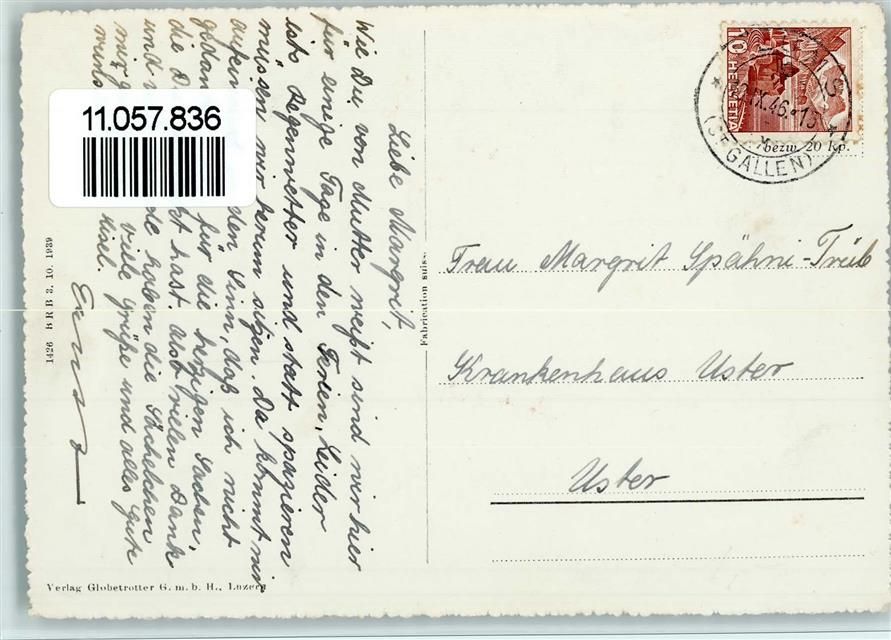 Liebe Margrit,
Wie Du von Mutter weißt sind wir hier
für einige Tage in den Ferien. Leider
ists Regenwetter und statt spazieren
müssen wir herum sitzen. Da kommt mir
auf ein den Sinn, daß ich nicht
gedan für die herzigen Sachen,
die Du kt hast. Also vielen Dank
und de haben die Sächelchen
mir viele Grüße und alles Gute
11.057.836
10 HELVETIA
IX.46.-13
(ST. GALLEN)
bezw. 20 Rp.
Frau Margrit Spähni-Trüb
Krankenhaus Uster
Uster
Fabrication suisse
1426 BRB 3. 10. 1939
Verlag Globetrotter G. m. b. H., Luzern